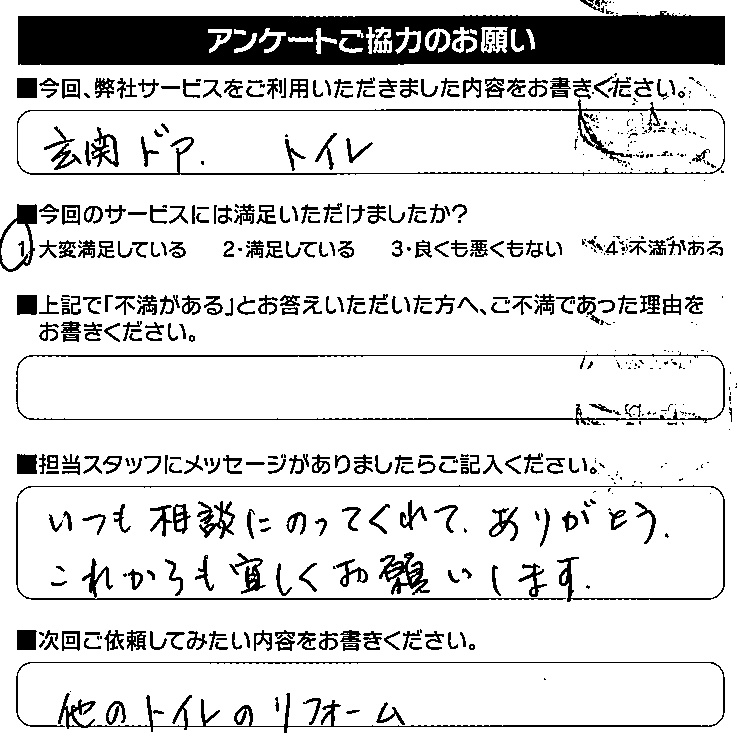 アンケートご協力のお願い
■今回、弊社サービスをご利用いただきました内容をお書きください。
玄関ドア. トイレ
■今回のサービスには満足いただけましたか?
1・大変満足している 2・満足している 3・良くも悪くもない 4・不満がある
■上記で「不満がある」とお答えいただいた方へ、ご不満であった理由を
お書きください。
■担当スタッフにメッセージがありましたらご記入ください。
いつも相談にのってくれて、ありがとう.
これからも宜しくお願いします.
■次回ご依頼してみたい内容をお書きください。
他のトイレのリフォーム